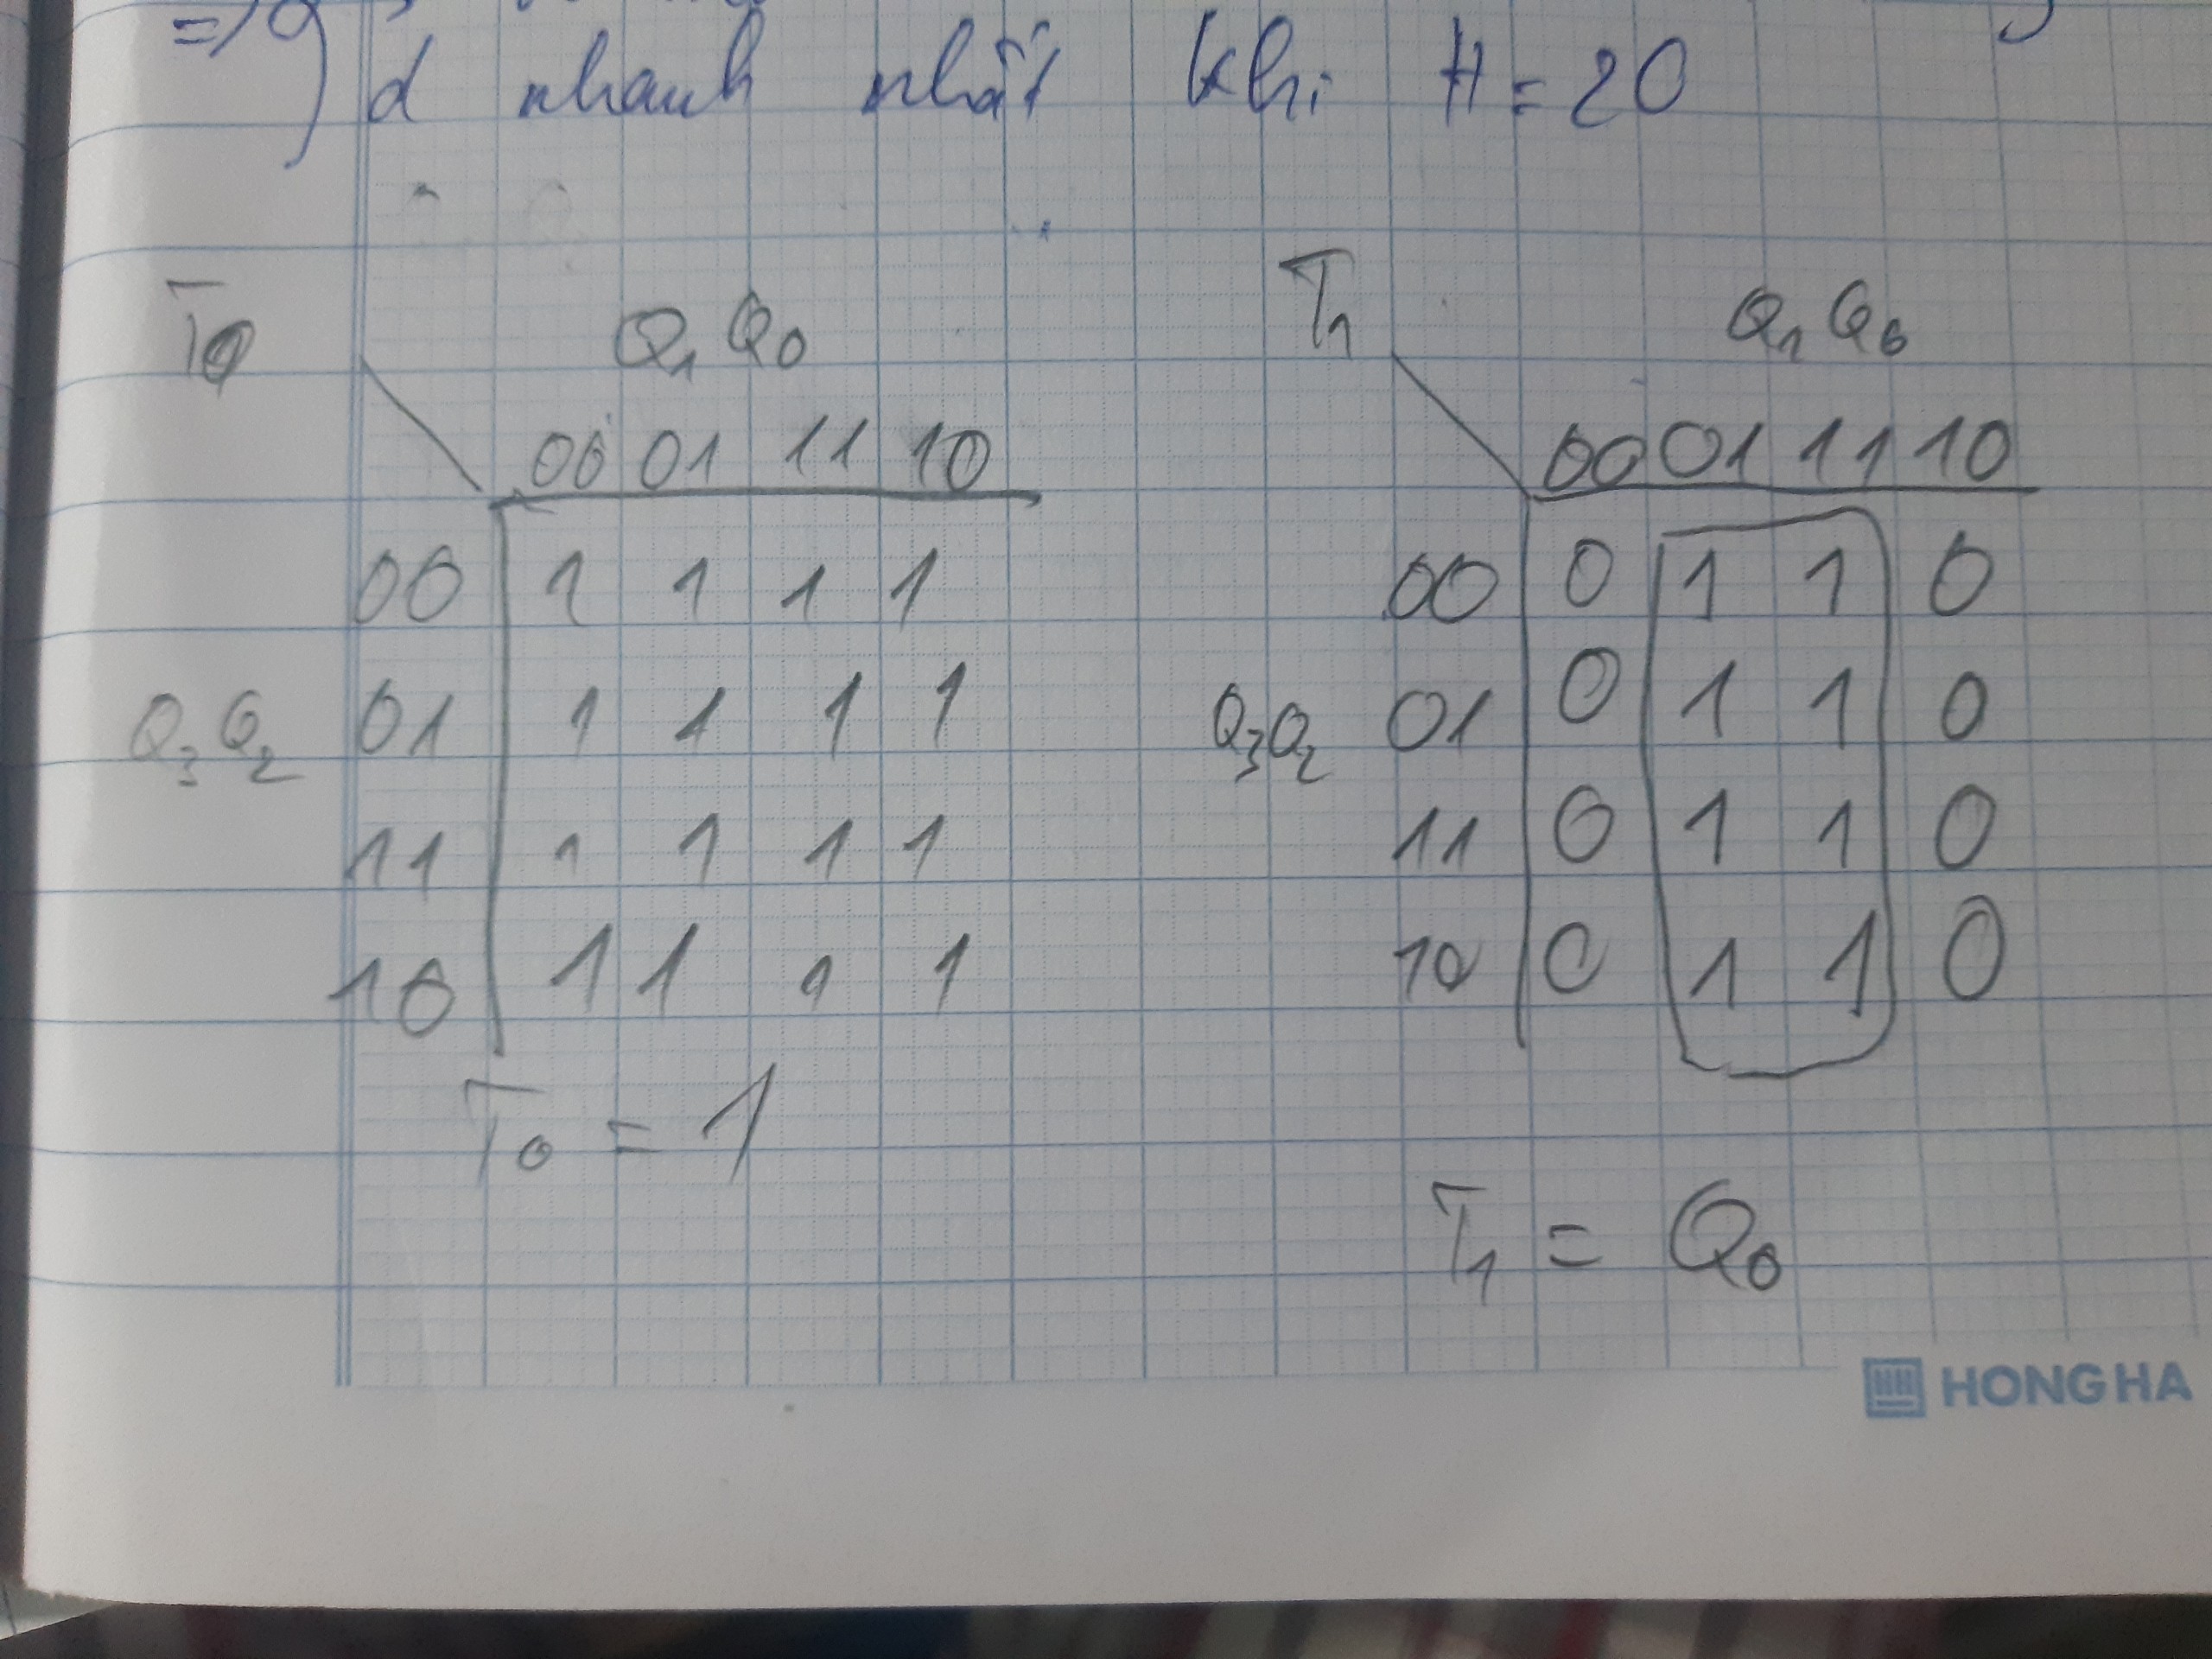 d nhanh nhất khi H = 20
T0 Q1 Q0
00 01 11 10
00 1 1 1 1
Q3Q2 01 1 1 1 1
11 1 1 1 1
10 1 1 1 1
T0 = 1
T1 Q1 Q0
00 01 11 10
00 0 1 1 0
Q3Q2 01 0 1 1 0
11 0 1 1 0
10 0 1 1 0
T1 = Q0
HONG HA